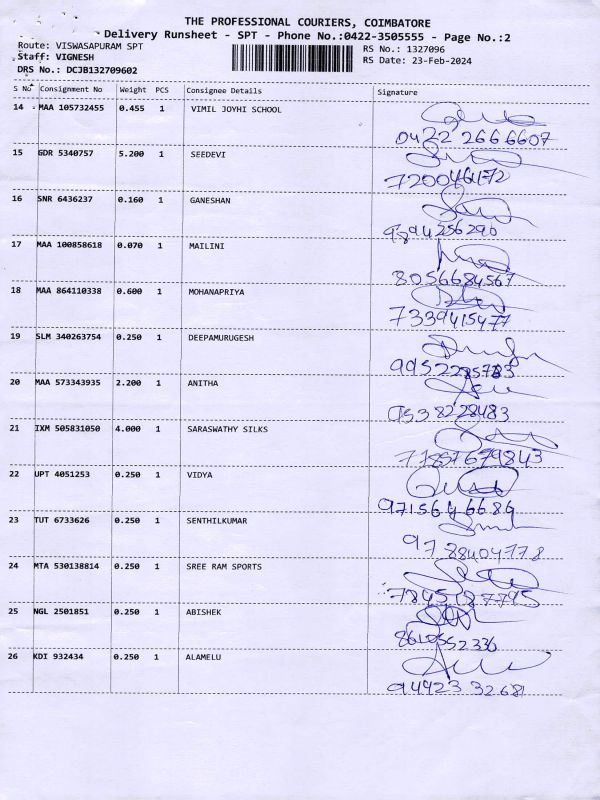 THE PROFESSIONAL COURIERS, COIMBATORE
Delivery Runsheet - SPT - Phone No.:0422-3505555 - Page No.:2
Route: VISWASAPURAM SPT
RS No.: 1327096
Staff: VIGNESH
RS Date: 23-Feb-2024
DRS No.: DCJB132709602
S No Consignment No Weight PCS Consignee Details Signature
14 MAA 105732455 0.455 1 VIMIL JOYHI SCHOOL
0422 2666607
15 GDR 5340757 5.200 1 SEEDEVI
7200464172
16 SNR 6436237 0.160 1 GANESHAN
9894256290
17 MAA 100858618 0.070 1 MAILINI
8056684567
18 MAA 864110338 0.600 1 MOHANAPRIYA
7339415477
19 SLM 340263754 0.250 1 DEEPAMURUGESH
20 MAA 573343935 2.200 1 ANITHA
21 IXM 505831050 4.000 1 SARASWATHY SILKS
22 UPT 4051253 0.250 1 VIDYA
23 TUT 6733626 0.250 1 SENTHILKUMAR
9788404778
24 MTA 530138814 0.250 1 SREE RAM SPORTS
25 NGL 2501851 0.250 1 ABISHEK
8610552336
26 KDI 932434 0.250 1 ALAMELU
94423 32681